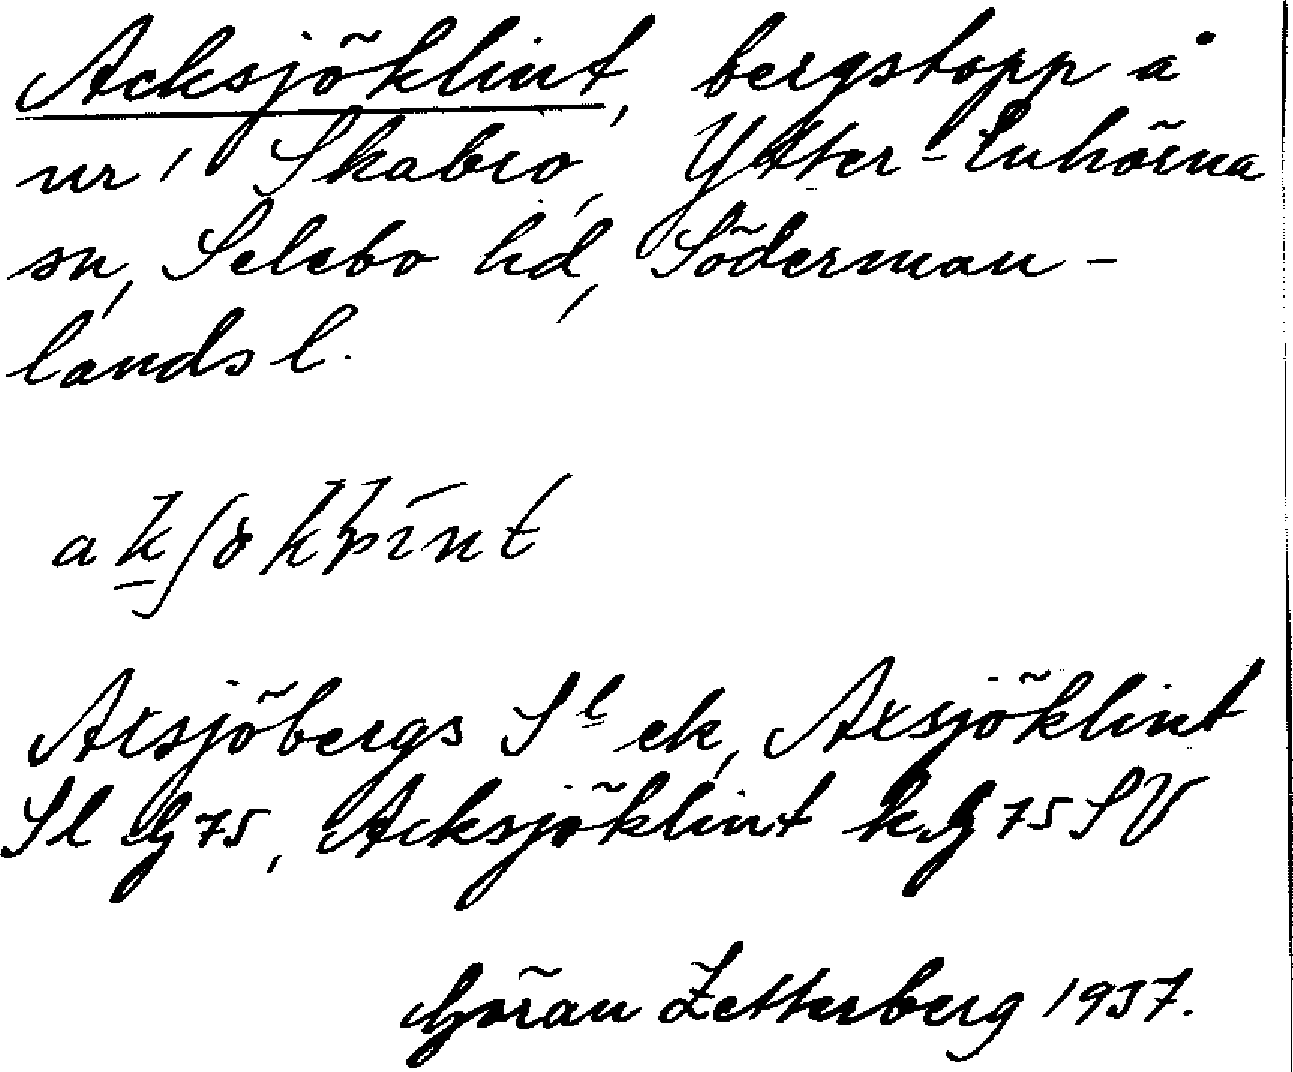 Acksjöklint, bergstopp å
nr 1 Skabro, Ytter-Enhörna
sn, Selebo hd, Söderman-
lands l.
Axsjöbergs Sl ek, Axsjöklint
Sl Lg 75, Acksjöklint k. Lg 75 SV
Göran Zetterberg 1937.